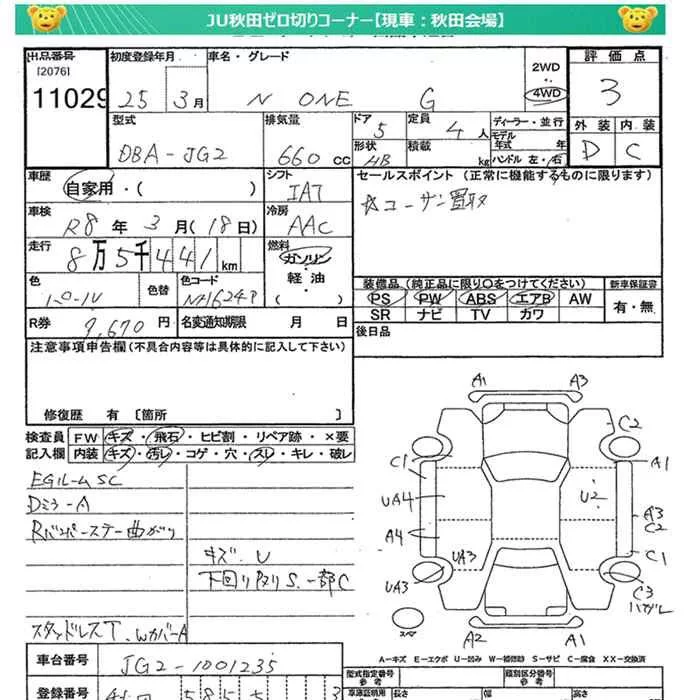 JU秋田ゼロ切りコーナー【現車：秋田会場】
出品番号 初度登録年月 車名・グレード 2WD ・ 4WD 評価点
[2076]
11029 25 3月 N ONE G 3
型式 排気量 ドア 5 定員 4人 ディーラー・並行 外装 内装
モデル年式 年
DBA-JG2 660cc 形状 HB 積載 kg ハンドル 左・右 D C
車歴 シフト セールスポイント (正常に機能するものに限ります)
自家用・( ) IAT ☆ユーザー買取
車検 冷房
R8年3月(18日) AAC
走行 8万5千441km 燃料
ガソリン
軽油
( )
色 色替 色コードNo
パール NH624P
装備品 (純正品に限り○をつけてください) 新車保証書
PS PW ABS エアB AW 有・無
SR ナビ TV カワ
R券 9,670円 名変通知期限 月 日 後日品
注意事項申告欄(不具合内容等は具体的に記入して下さい)
修復歴 有 〔箇所 〕
検査員 FW キズ・飛石・ヒビ割・リペア跡・×要
記入欄 内装 キズ・汚レ・コゲ・穴・スレ・キレ・破レ
EGルームSC
Dミラ-A
Rバンパーステー曲がり
キズ、U
下回りサビS、一部C
スタッドレスT、WカバーA
A1 A3
C2
C1 A1
UA4 U2
A3
C2
A4
UA3 C1
UA3 C3
ハガレ
スペア
A2 A1
A-キズ E-エクボ U-凹み W-補修跡 S-サビ C-腐食 XX-交換済
車台番号 JG2-1001235
型式指定番号 類別区分番号
参考 参考
登録番号 秋田 585 3
車庫証明用 長さ 幅 高さ